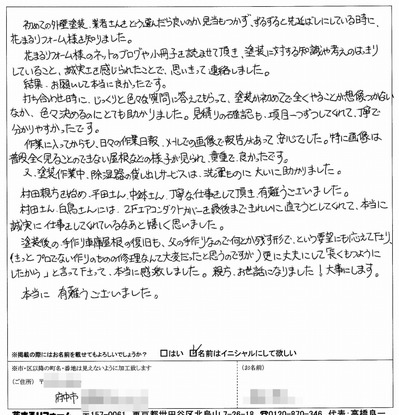 初めての外壁塗装、業者さんをどう選んだら良いか見当もつかず、ずるずると先延ばしにしている時に、
花まるリフォーム様を知りました。
花まるリフォーム様のネットのブログや小冊子を読ませて頂き、塗装に対する知識や考えのはっきり
していること、誠実さを感じられたことで、思いきって連絡しました。
結果、お願いして本当に良かったです。
打ち合わせ時に、じっくりと色々な質問に答えてもらって、塗装が初めてで全くやることが想像つかない
なか、色々決めるのにとても助かりました。見積りの確認も、項目一つずつしてくれて、丁寧で
分かりやすかったです。
作業に入ってからも、日々の作業日報、メールでの画像で報告があって安心でした。特に画像は
普段全く見ることのできない屋根などの様子が見られ、貴重で、良かったです。
又、塗装作業中、除湿器の貸し出しサービスは、洗濯ものに大いに助かりました。
村田親方を始め、平田さん、中鉢さん、丁寧な仕事をして頂き、有難うございました。
村田さん、白鳥さんには、2Fエアコンダクトカバーを最後まできれいに直そうとしてくれて、本当に
誠実に仕事をしてくれているなあと嬉しく思いました。
塗装後の手作り車庫屋根の復旧も、父の手作りなので何とか残す形で、という要望にも応えて下さり、
(きっとプロでない作りのものの修理なんて大変だったと思うのですが)更に丈夫にして「長くもつように
したから」と言って下さって、本当に感激しました。親方、お世話になりました！大事にします。
本当に 有難うございました。
※掲載の際にはお名前を載せてもよろしいでしょうか? □はい ☑名前はイニシャルにして欲しい
※市・区以降の町名・番地は見えないように加工致します
(ご住所) 〒
(お名前)
府中市
花まるリフォーム 〒157-0061 東京都世田谷区北烏山7-26-18 ☎0120-870-346 代表:高橋良一